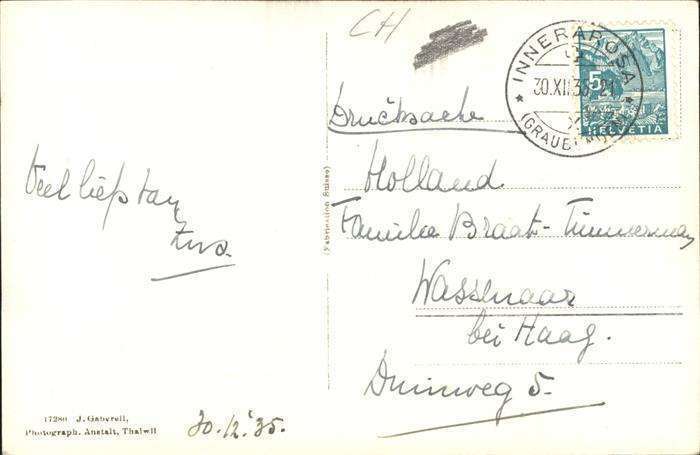 CH
INNERAROSA
30.XII.35-21
(GRAUBÜNDEN)
5
HELVETIA
Drucksache
Holland
Familie Braat-Timmerman
Wassenaar
bei Haag.
Duinweg 5.
Veel liefs van
(Fabrication Suisse)
17280 J. Gaberell,
Photograph. Anstalt, Thalwil
30.12.'35.